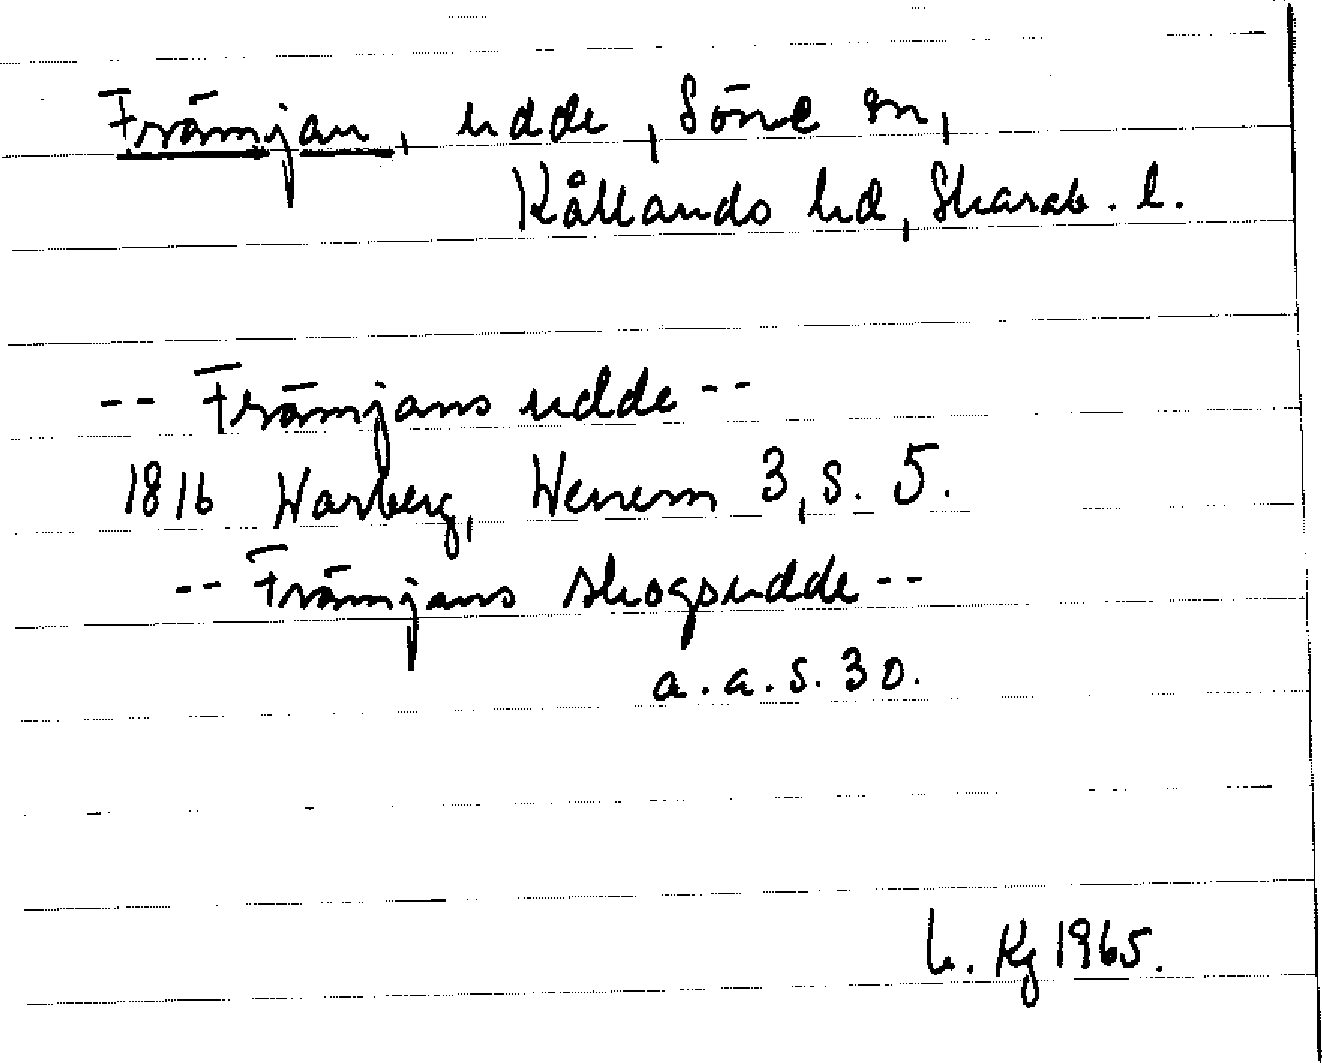 Främjan, udde, Söne sn,
Kållands hd, Skarab. l.
-- Främjans udde --
1816 Warberg, Wenern 3, s. 5.
-- Främjans skogsudde --
a. a. s. 30.
Kg 1965.